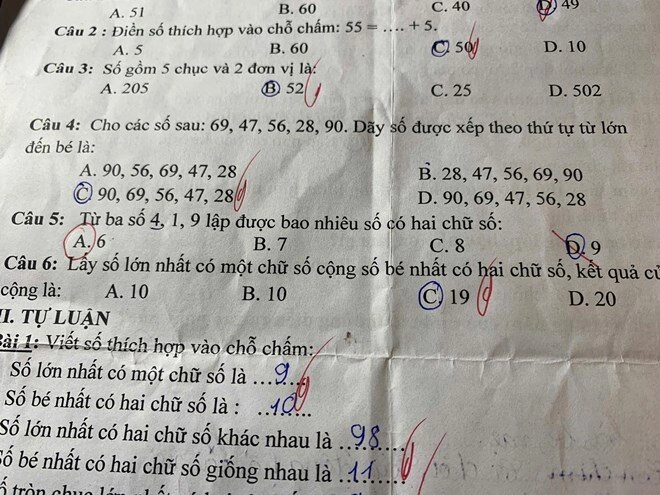 A. 51 B. 60 C. 40 D. 49
Câu 2 : Điền số thích hợp vào chỗ chấm: 55 = .... + 5.
A. 5 B. 60 C. 50 D. 10
Câu 3: Số gồm 5 chục và 2 đơn vị là:
A. 205 B. 52 C. 25 D. 502
Câu 4: Cho các số sau: 69, 47, 56, 28, 90. Dãy số được xếp theo thứ tự từ lớn
đến bé là:
A. 90, 56, 69, 47, 28 B. 28, 47, 56, 69, 90
C. 90, 69, 56, 47, 28 D. 90, 69, 47, 56, 28
Câu 5: Từ ba số 4, 1, 9 lập được bao nhiêu số có hai chữ số:
A. 6 B. 7 C. 8 D. 9
Câu 6: Lấy số lớn nhất có một chữ số cộng số bé nhất có hai chữ số, kết quả củ
cộng là: A. 10 B. 10 C. 19 D. 20
II. TỰ LUẬN
Bài 1: Viết số thích hợp vào chỗ chấm:
Số lớn nhất có một chữ số là ...9...
Số bé nhất có hai chữ số là : ..10......
Số lớn nhất có hai chữ số khác nhau là ..98....
Số bé nhất có hai chữ số giống nhau là ..11.....